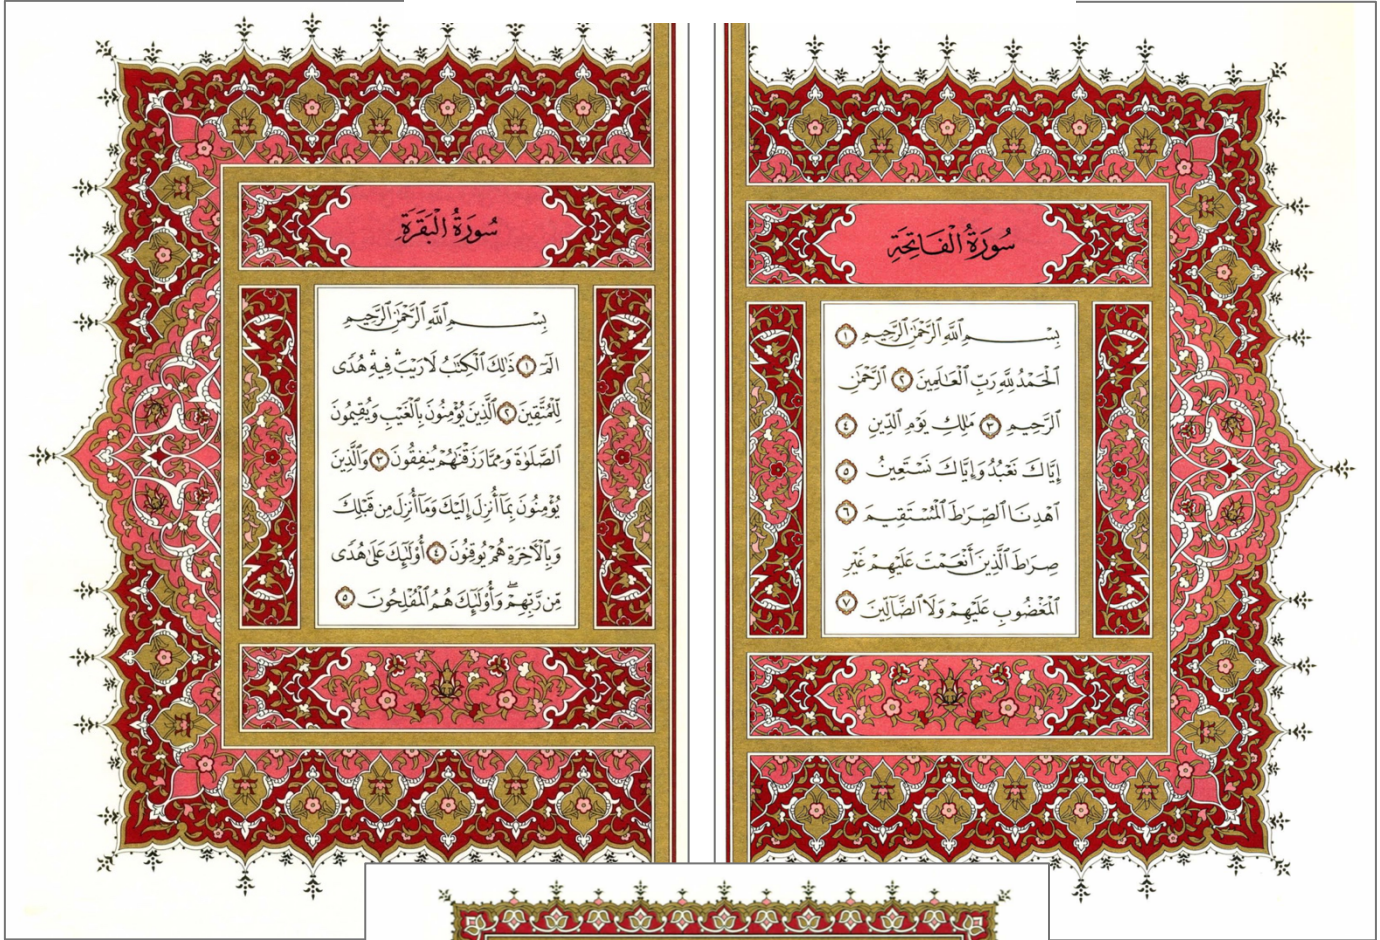 سُورَةُ الْفَاتِحَةِ
بِسْمِ ٱللَّهِ ٱلرَّحْمَٰنِ ٱلرَّحِيمِ ١
ٱلْحَمْدُ لِلَّهِ رَبِّ ٱلْعَٰلَمِينَ ٢ ٱلرَّحْمَٰنِ
ٱلرَّحِيمِ ٣ مَٰلِكِ يَوْمِ ٱلدِّينِ ٤
إِيَّاكَ نَعْبُدُ وَإِيَّاكَ نَسْتَعِينُ ٥
ٱهْدِنَا ٱلصِّرَٰطَ ٱلْمُسْتَقِيمَ ٦
صِرَٰطَ ٱلَّذِينَ أَنْعَمْتَ عَلَيْهِمْ غَيْرِ
ٱلْمَغْضُوبِ عَلَيْهِمْ وَلَا ٱلضَّآلِّينَ ٧
سُورَةُ الْبَقَرَةِ
بِسْمِ ٱللَّهِ ٱلرَّحْمَٰنِ ٱلرَّحِيمِ
الٓمٓ ١ ذَٰلِكَ ٱلْكِتَٰبُ لَا رَيْبَۛ فِيهِۛ هُدًى
لِّلْمُتَّقِينَ ٢ ٱلَّذِينَ يُؤْمِنُونَ بِٱلْغَيْبِ وَيُقِيمُونَ
ٱلصَّلَوٰةَ وَمِمَّا رَزَقْنَٰهُمْ يُنفِقُونَ ٣ وَٱلَّذِينَ
يُؤْمِنُونَ بِمَآ أُنزِلَ إِلَيْكَ وَمَآ أُنزِلَ مِن قَبْلِكَ
وَبِٱلْءَاخِرَةِ هُمْ يُوقِنُونَ ٤ أُو۟لَٰٓئِكَ عَلَىٰ هُدًى
مِّن رَّبِّهِمْۖ وَأُو۟لَٰٓئِكَ هُمُ ٱلْمُفْلِحُونَ ٥